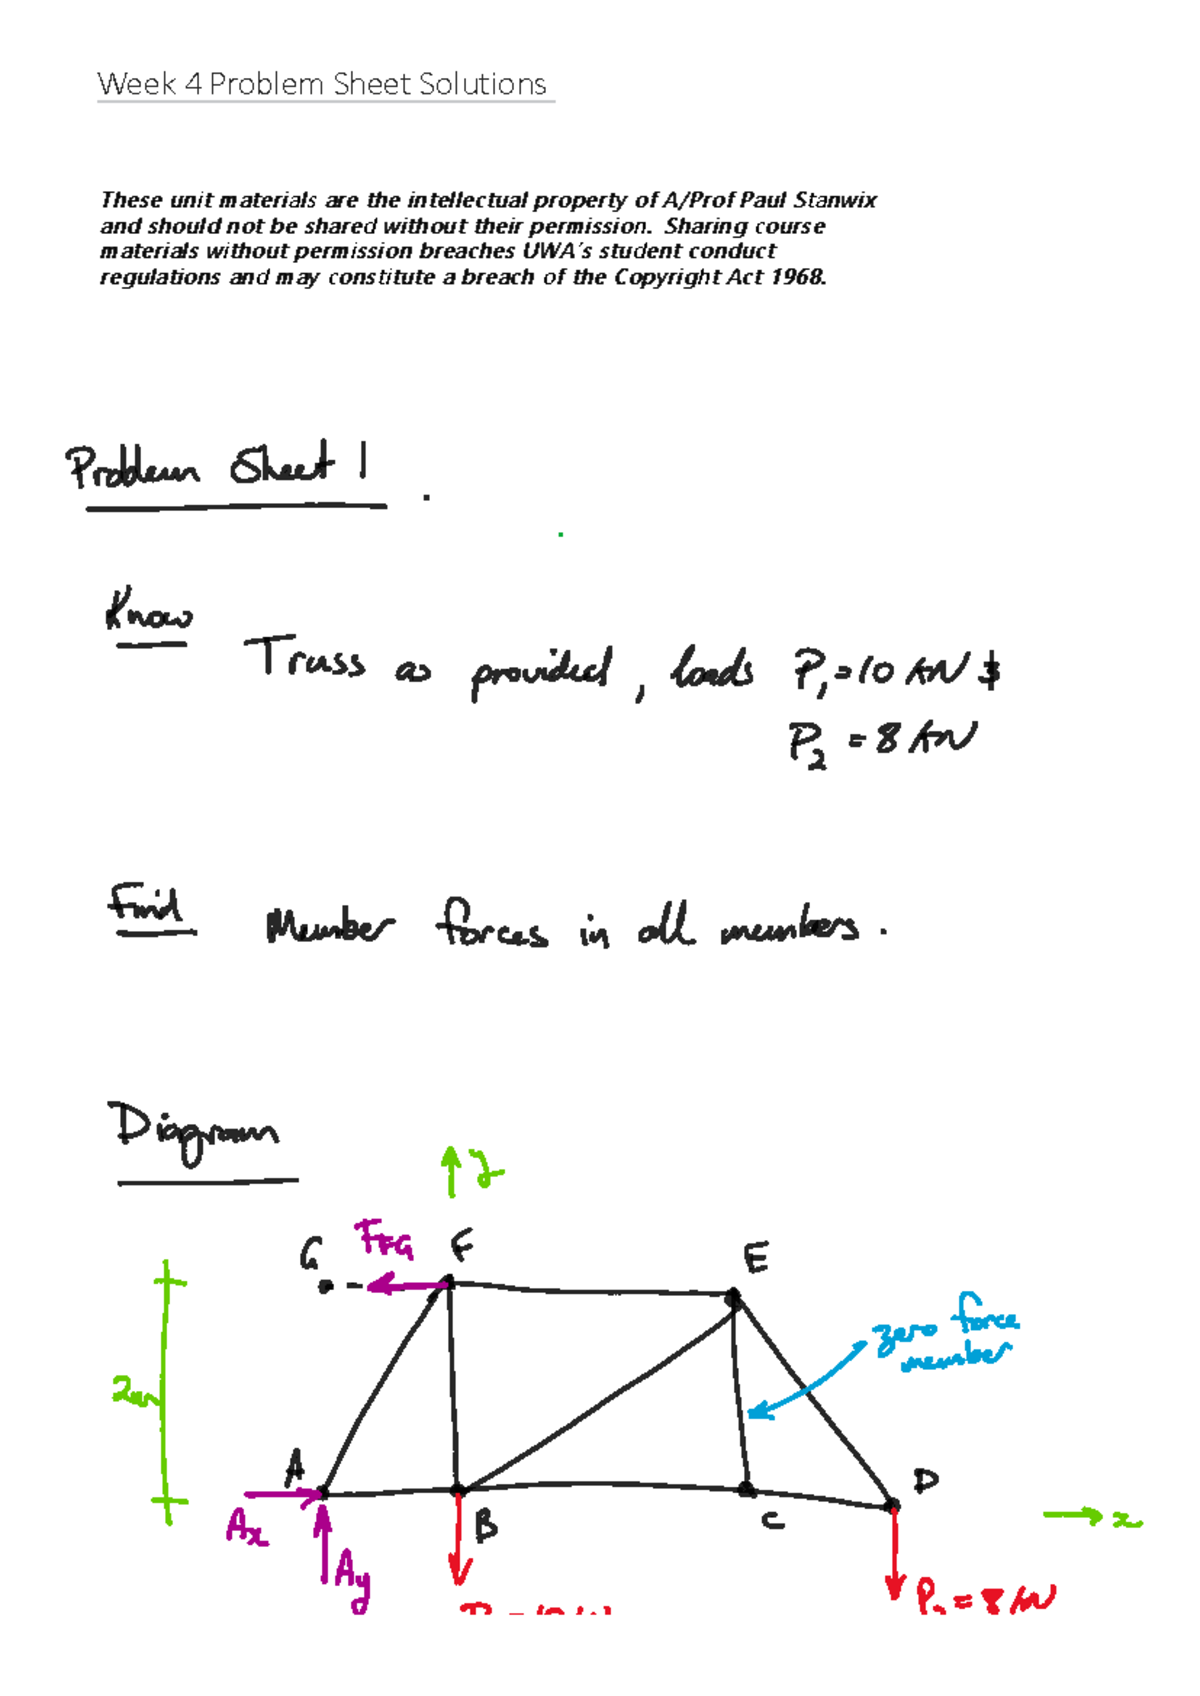 Week 4 Problem Sheet Solutions
These unit materials are the intellectual property of A/Prof Paul Stanwix
and should not be shared without their permission. Sharing course
materials without permission breaches UWA's student conduct
regulations and may constitute a breach of the Copyright Act 1968.
Problem Sheet 1
Know
Truss as provided, loads P₁ = 10 kN &
P₂ = 8 kN
Find Member forces in all members.
Diagram
y
G F_FG F E
zero force
member
2m
A D
Ax B C x
Ay
P₂ = 8 kN